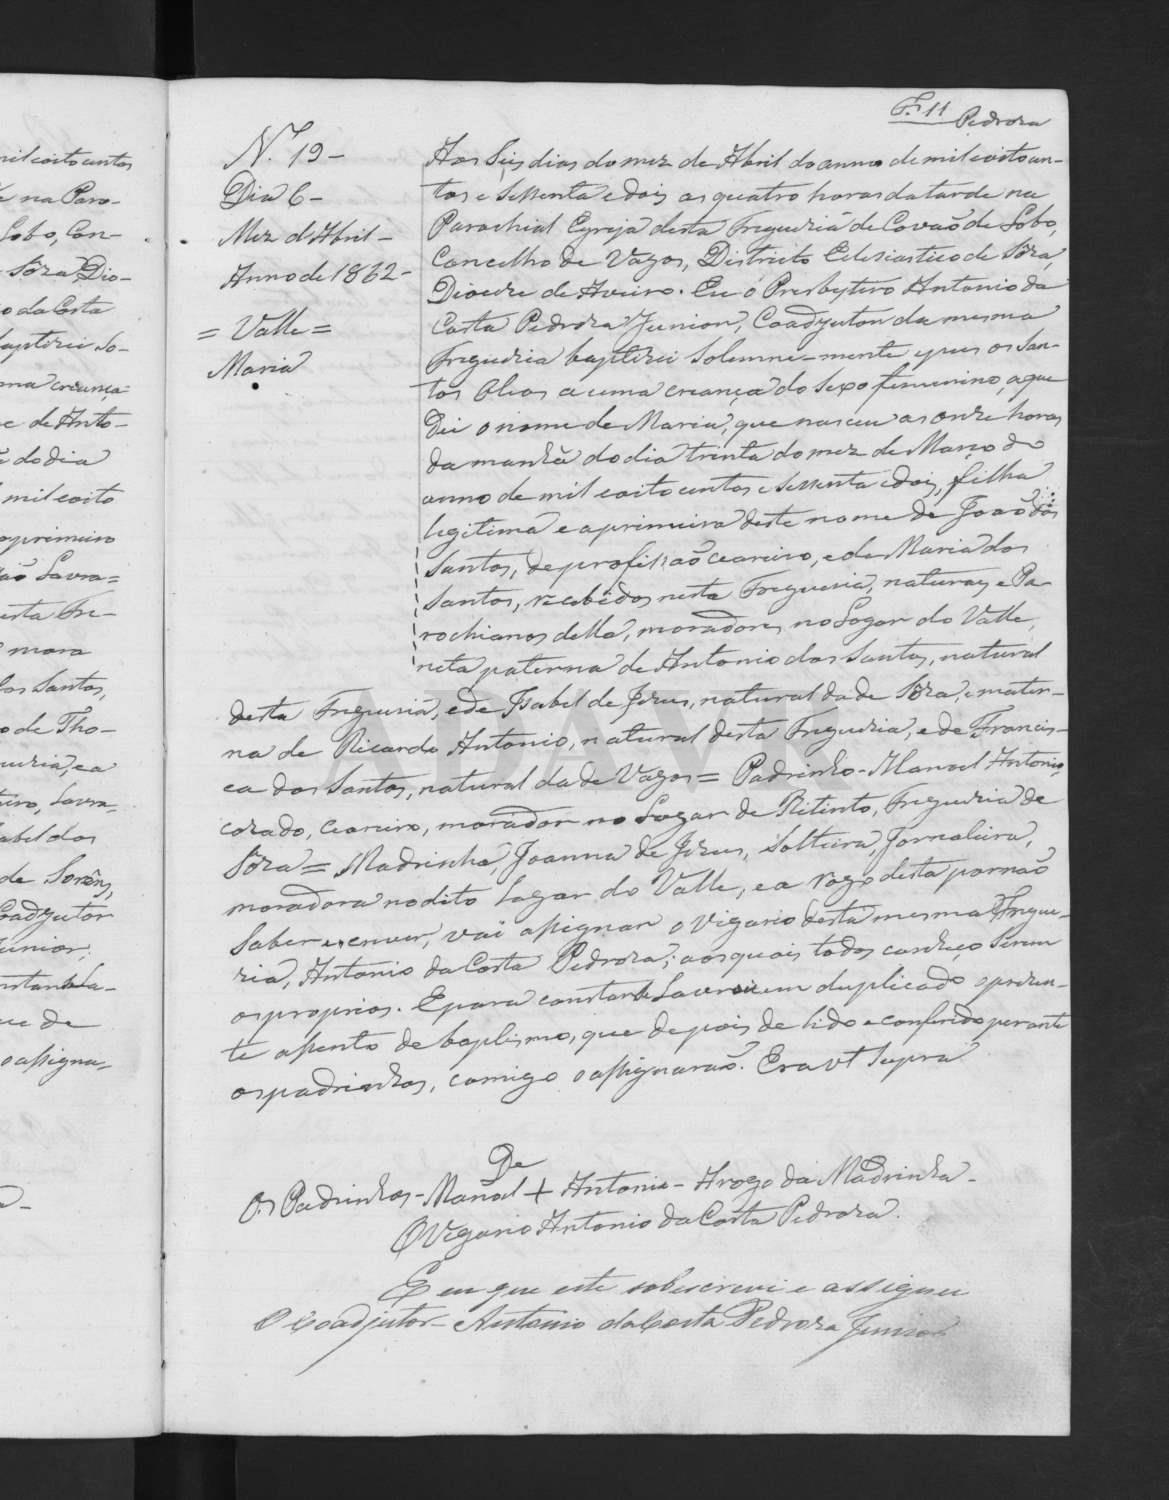 F. 11 Pedroza
N.º 19 -
Dia 6 -
Mez d'Abril -
Anno de 1862 -
= Valle =
Maria
Aos seis dias do mez de Abril do anno de mil oito cen-
tos e sessenta e dois as quatro horas da tarde na
Parochial Egreja desta Freguezia de Covão do Lobo,
Concelho de Vagos, Districto Eclesiastico de Sôza,
Diocese de Aveiro. Eu o Presbytero Antonio da
Costa Pedroza Junior, Coadjutor da mesma
Freguezia baptizei solemne-mente e puz os San-
tos Oleos a uma creança do sexo femenino, a que
dei o nome de Maria, que nasceu as onze horas
da manhã do dia trinta do mez de Março do
anno de mil oito centos e sessenta e dois, filha
legitima e a primeira deste nome de João dos
Santos, de profissão ceareiro, e de Maria dos
Santos, recebidos nesta Freguezia, naturaes e Pa-
rochianos della, moradores no Logar do Valle,
neta paterna de Antonio dos Santos, natural
desta Freguezia, e de Isabel de Jezus, natural da de Sôza, e mater-
na de Ricardo Antonio, natural desta Freguezia, e de Francis-
ca dos Santos, natural da de Vagos = Padrinho - Manoel Antonio,
cazado, ceareiro, morador no Logar de Ritinto, Freguezia de
Sôza = Madrinha, Joanna de Jezus, solteira, Jornaleira,
moradora no dito Logar do Valle, e a rogo desta por não
saber escrever, vai assignar o Vigario desta mesma Fregue-
zia, Antonio da Costa Pedroza; aos quaes todos conheço serem
os proprios. E para constar se lavrou em duplicado o prezen-
te assento de baptismo, que depois de lido e conferido perante
os padrinhos, comigo o assignarão. Era vt supra
De
Os Padrinhos - Manoel + Antonio - A rogo da Madrinha -
O Vigario Antonio da Costa Pedroza.
E eu que este sobescrevi e assignei
O Coadjutor - Antonio da Costa Pedroza Junior
ADAVR